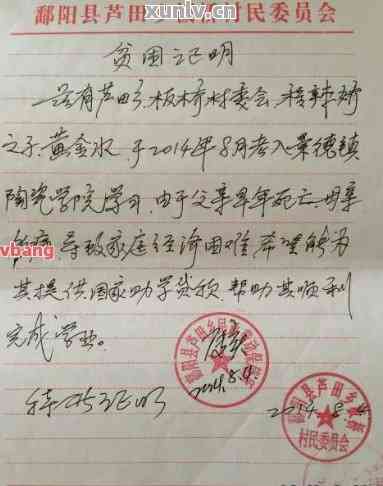 鄱阳县芦田乡 村民委员会
xunlv.cn
贫困证明
兹有芦田乡板桥村委会程辣娇
之子黄金水,于2014年8月考入景德镇
陶瓷学院学习,由于父亲早年死亡,母亲
vbang 导致家庭经济困难,希望能为
其提供国家助学贷款,帮助其顺利
完成学业。
情况
2014.8.4.
特此证明
2014.8.4
鄱阳县芦田乡
村民委员会